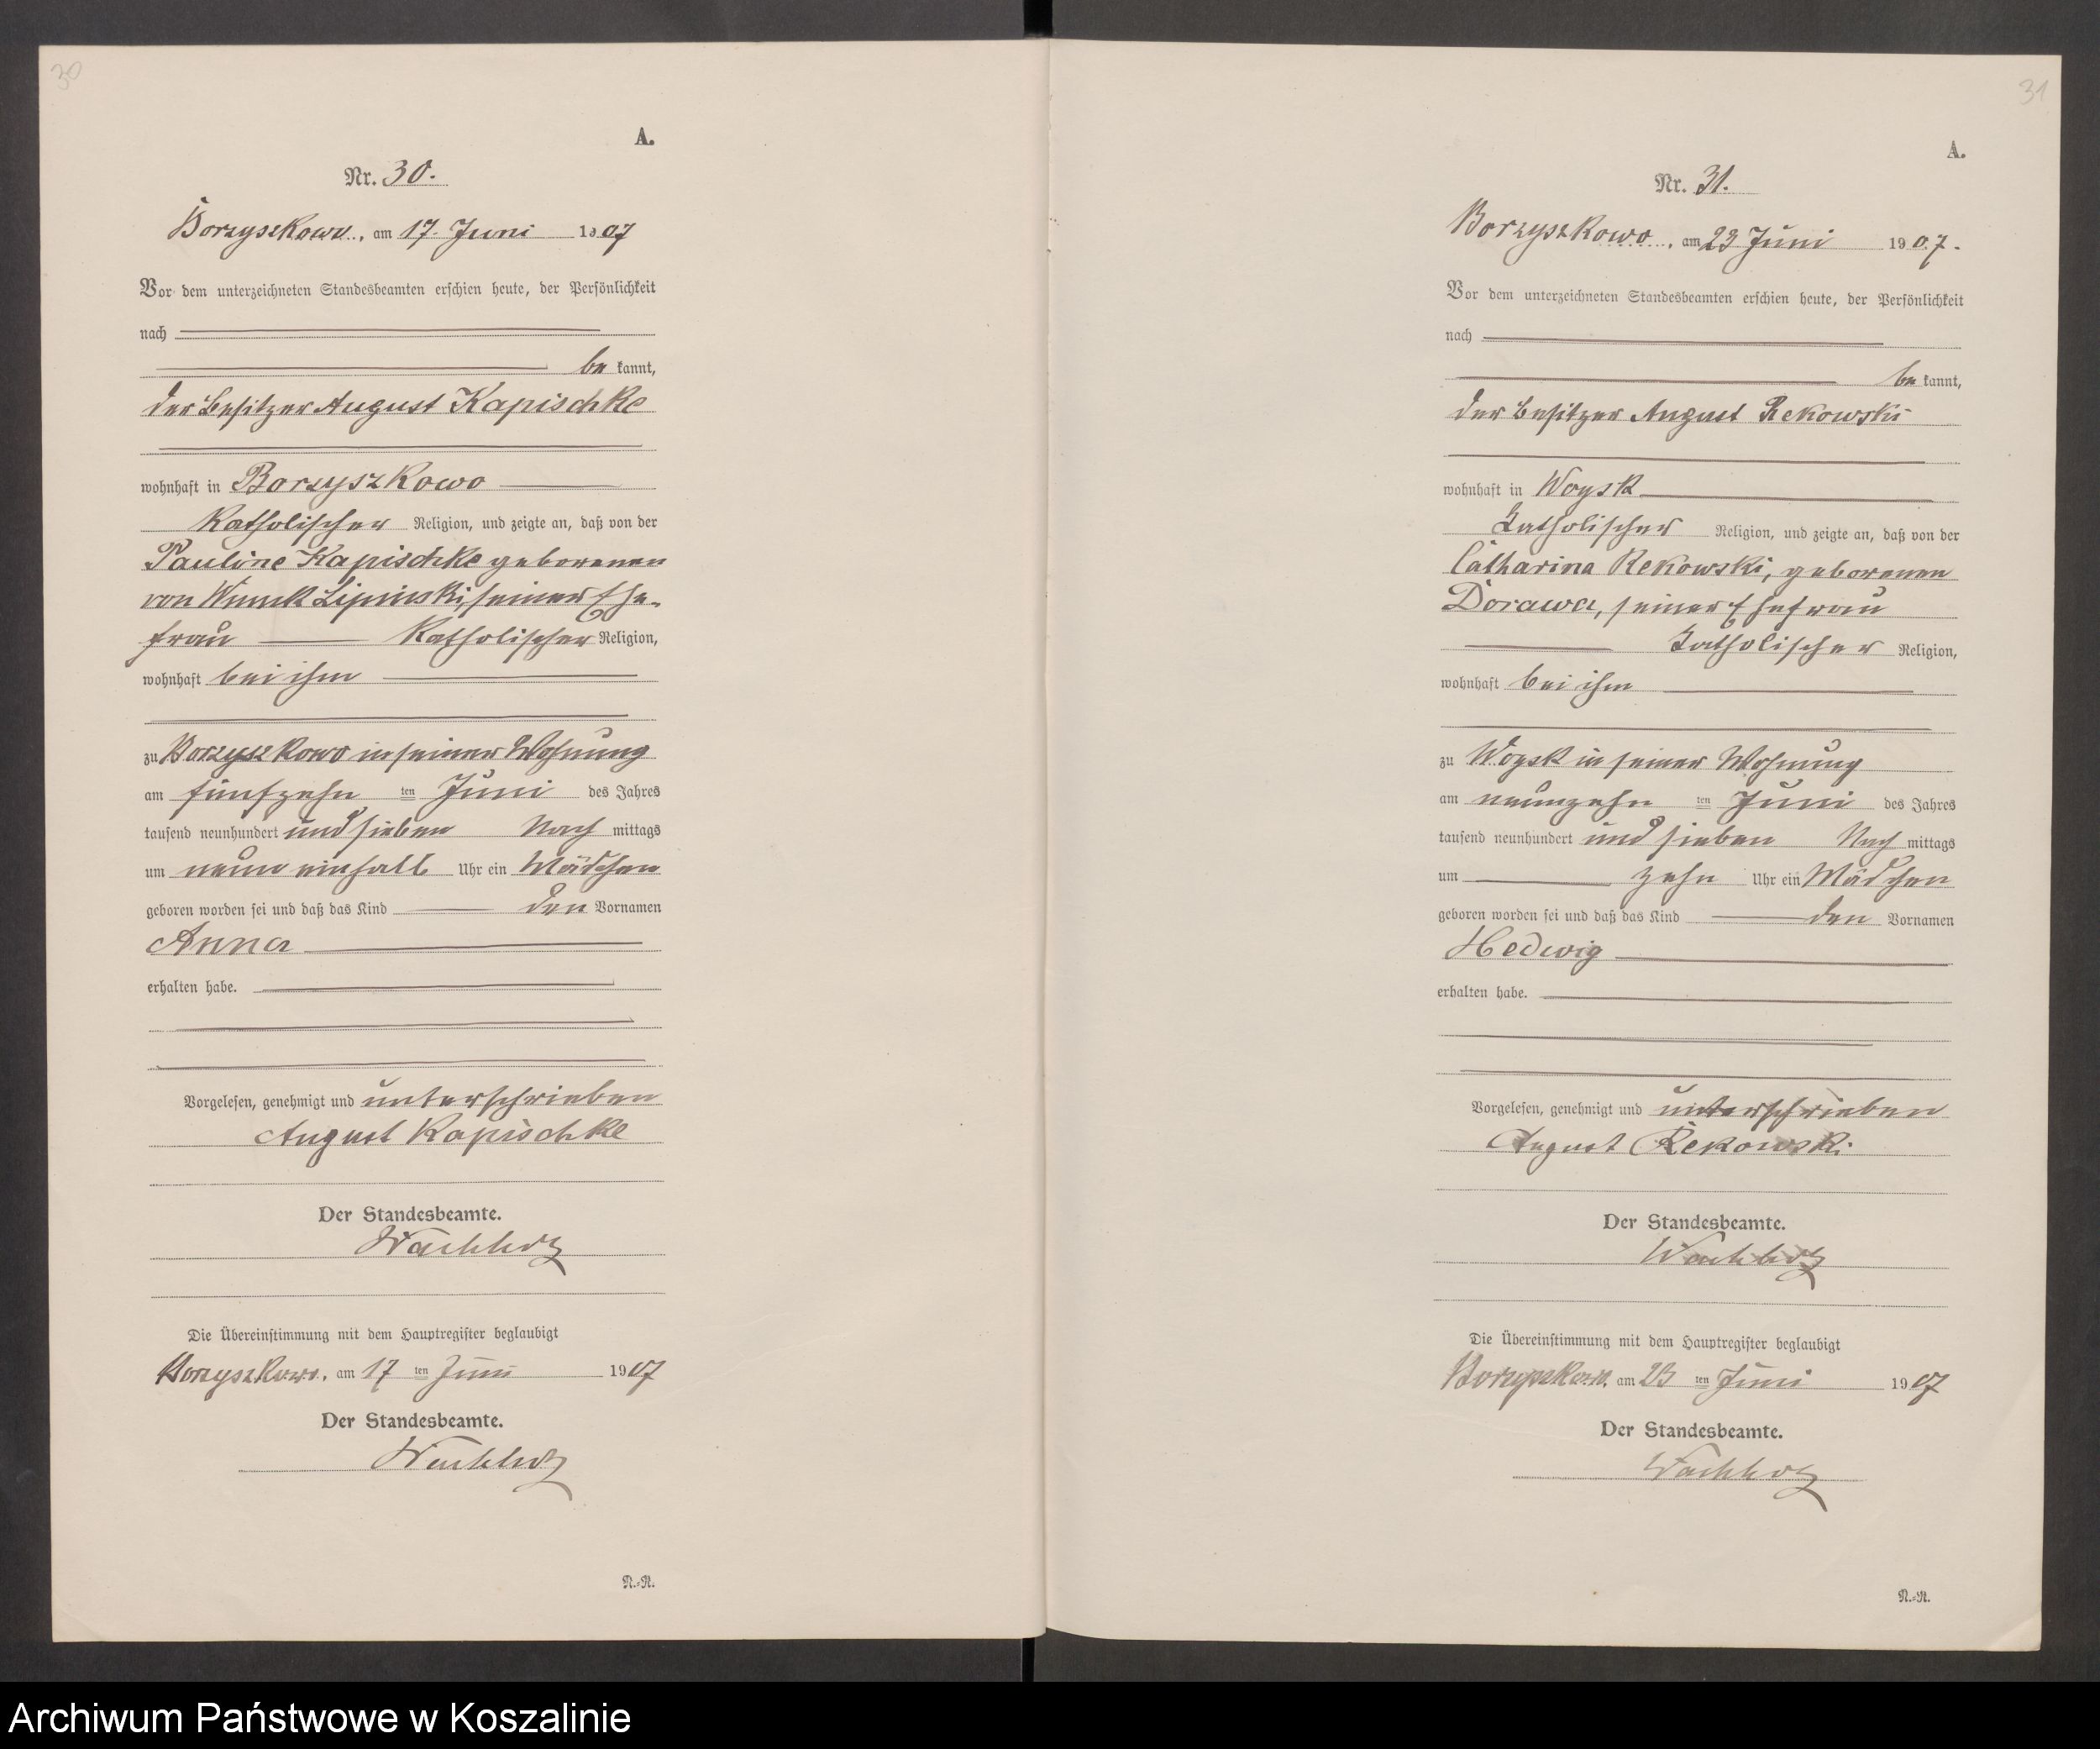 30
A.
Nr. 30.
Borzyszkowo, am 17. Juni 1907
Vor dem unterzeichneten Standesbeamten erschien heute, der Persönlichkeit
nach
be kannt,
der Besitzer August Kapischke
wohnhaft in Borzyszkowo
Katholischer Religion, und zeigte an, daß von der
Pauline Kapischke geborenen
von Wnuck Lipinski, seiner Ehe-
frau Katholischer Religion,
wohnhaft bei ihm
zu Borzyszkowo in seiner Wohnung
am fünfzehn ten Juni des Jahres
tausend neunhundert und sieben Nach mittags
um neun einhalb Uhr ein Mädchen
geboren worden sei und daß das Kind den Vornamen
Anna
erhalten habe.
Vorgelesen, genehmigt und unterschrieben
August Kapischke
Der Standesbeamte.
Wachholz
Die Übereinstimmung mit dem Hauptregister beglaubigt
Borzyszkowo, am 17 ten Juni 1907
Der Standesbeamte.
Wachholz
N.-R.
31
A.
Nr. 31.
Borzyszkowo, am 23 Juni 1907.
Vor dem unterzeichneten Standesbeamten erschien heute, der Persönlichkeit
nach
be kannt,
der Besitzer August Rekowski
wohnhaft in Woysk
Katholischer Religion, und zeigte an, daß von der
Catharina Rekowski, geborenen
Dorawa, seiner Ehefrau
Katholischer Religion,
wohnhaft bei ihm
zu Woysk in seiner Wohnung
am neunzehn ten Juni des Jahres
tausend neunhundert und sieben Nach mittags
um zehn Uhr ein Mädchen
geboren worden sei und daß das Kind den Vornamen
Hedwig
erhalten habe.
Vorgelesen, genehmigt und unterschrieben
August Rekowski
Der Standesbeamte.
Wachholz
Die Übereinstimmung mit dem Hauptregister beglaubigt
Borzyszkowo, am 23 ten Juni 1907
Der Standesbeamte.
Wachholz
N.-R.
Archiwum Państwowe w Koszalinie